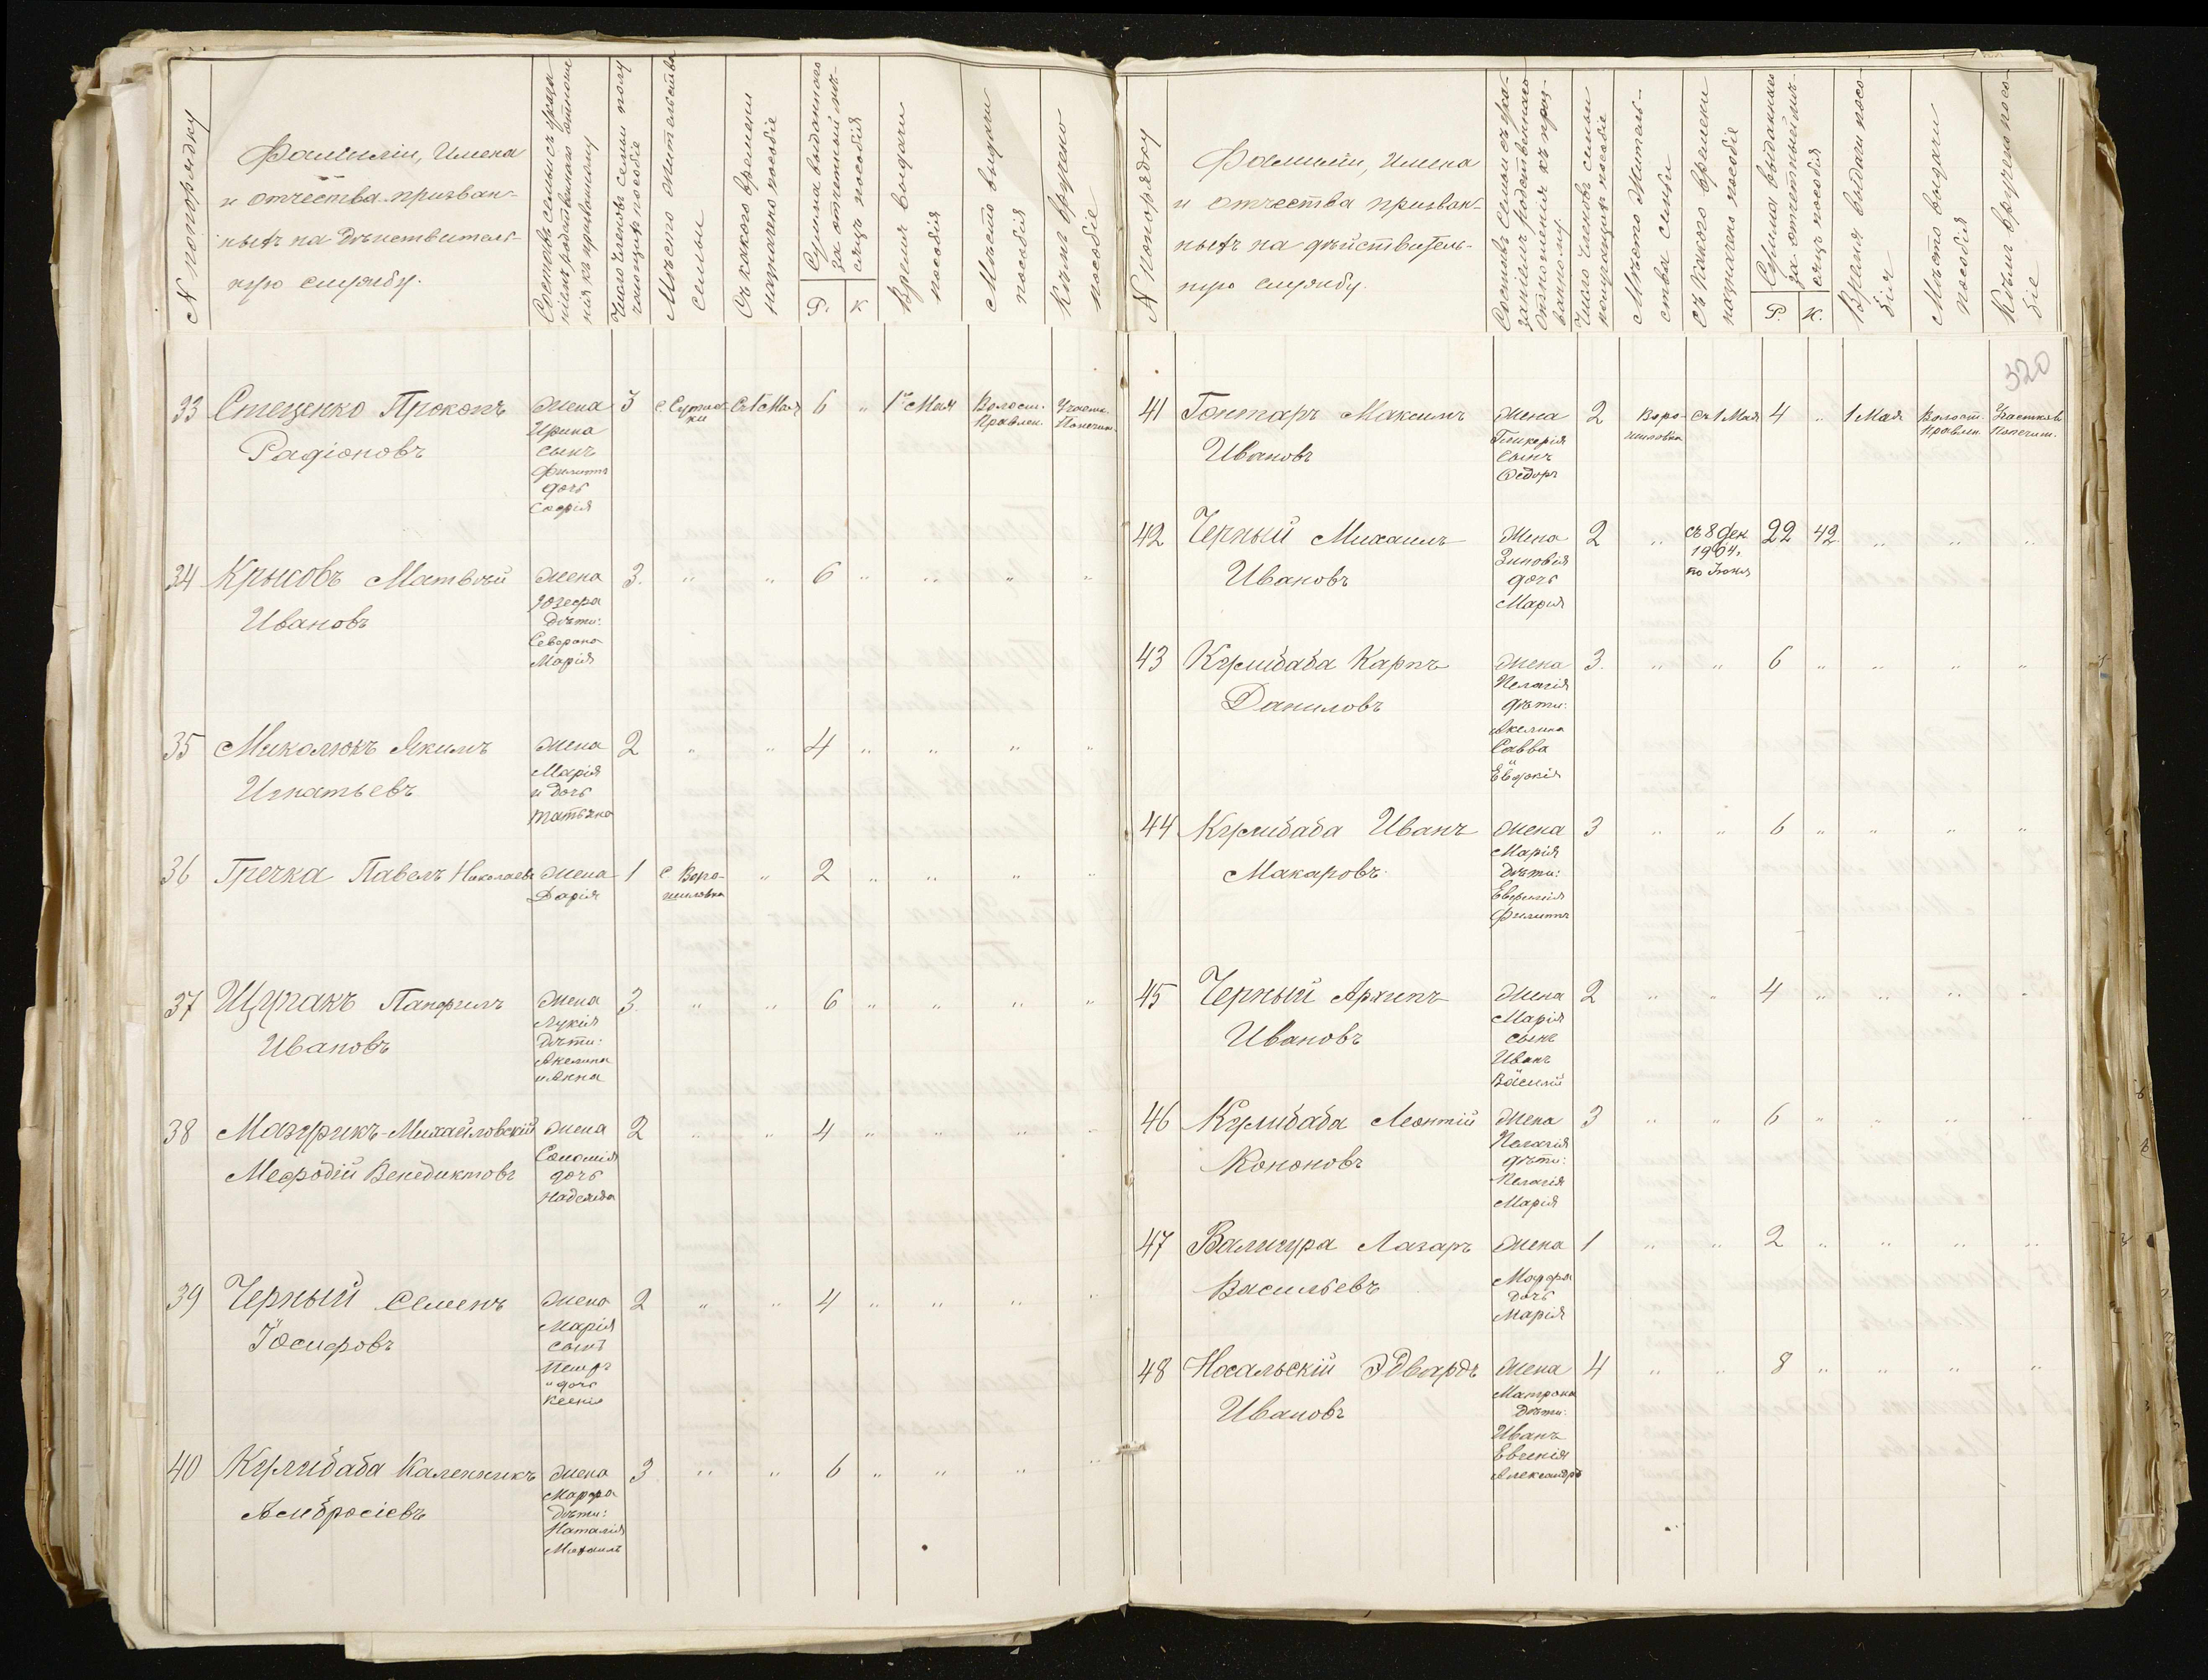 № по порядку
Фамиліи, Имена
и отчества призван-
ныхъ на дѣйствитель-
ную службу.
Составъ семьи съ указа
ніемъ родственнаго отноше
нія къ призванному
Число членовъ семьи полу
чающихъ пособіе
Мѣсто жительства
семьи
Съ какого времени
назначено пособіе
Сумма выданнаго
за отчетный мѣ-
сяцъ пособія
Р. К
Время выдачи
пособія
Мѣсто выдачи
пособія
Кѣмъ вручено
пособіе
33 Стеценко Прокопъ жена 3 Съ 1 Мая 6 " 1го Мая Волост. Участк.
Ирина Правлен. Попечит.
Радіоновъ сынъ
Филиппъ
дочь
Софія
34 Крысовъ Матвѣй жена 3. " " 6 " " " "
Юзефа
Ивановъ дѣти:
Марія
35 Миколюкъ Якимъ жена 2 " " 4 " " " "
Марія
Игнатьевъ и дочь
Татьяна
36 Гречка Павелъ Николаевъ жена 1 с Воро- " 2 " " " "
Дарія шиловка
37 Щупакъ Панфилъ жена 3. " " 6 " " " "
Лукія
Ивановъ дѣти:
Акелина
и Анна
38 Мазурикъ-Михайловскій жена 2 " " 4 " " " "
Соломія
Мефодій Венедиктовъ дочь
Надежда
39 Черный Семенъ жена 2 " " 4 " " " "
Марія
Іосифовъ сынъ
Петръ
и дочь
Ксенія
40 Кулибаба Каленникъ жена 3 " " 6 " " " "
Марфа
Амбросіевъ дѣти:
Наталія
Михаилъ
№ по порядку
Фамиліи, имена
и отчества призван-
ныхъ на дѣйствитель-
ную службу.
Составъ семьи съ ука-
заніемъ родственнаго
отношенія къ приз-
ванному
Число членовъ семьи
получающихъ пособіе
Мѣсто Житель-
ства семьи
Съ какого времени
назначено пособіе
Сумма выданнаго
за отчетный мѣ-
сяцъ пособія
Р. К.
Время выдачи посо-
бія
Мѣсто выдачи
пособія
Кѣмъ вручено посо-
біе
320
41 Гонтаръ Максимъ жена 2 Воро- Съ 1 Мая 4 " 1 Мая Волост. Участков
Гликерія шиловка Правлен. Попечит.
Ивановъ сынъ
Ѳедоръ
42 Черный Михаилъ жена 2 " съ 8 дек 22 42 " " "
Зиновія 1904.
Ивановъ дочь
Марія
43 Кулибаба Карпъ жена 3. " " 6 " " " "
Пелагія
Даниловъ дѣти:
Акелина
Савва
и
Евдокія
44 Кулибаба Иванъ жена 3 " " 6 " " " "
Марія
Макаровъ. дѣти:
Филиппъ
45 Черный Архипъ жена 2 " " 4 " " " "
Марія
Ивановъ сынъ
Иванъ
Василій
46 Кулибаба Леонтій жена 3 " " 6 " " " "
Пелагія
Кононовъ дѣти:
Пелагія
Марія
47 Валигура Лазаръ жена 1 " " 2 " " " "
Марфа
Васильевъ дочь
Марія
48 Носальскій Эдвардъ жена 4 " " 8 " " " "
Матрона
Ивановъ дѣти:
Иванъ
Евгенія
Александръ